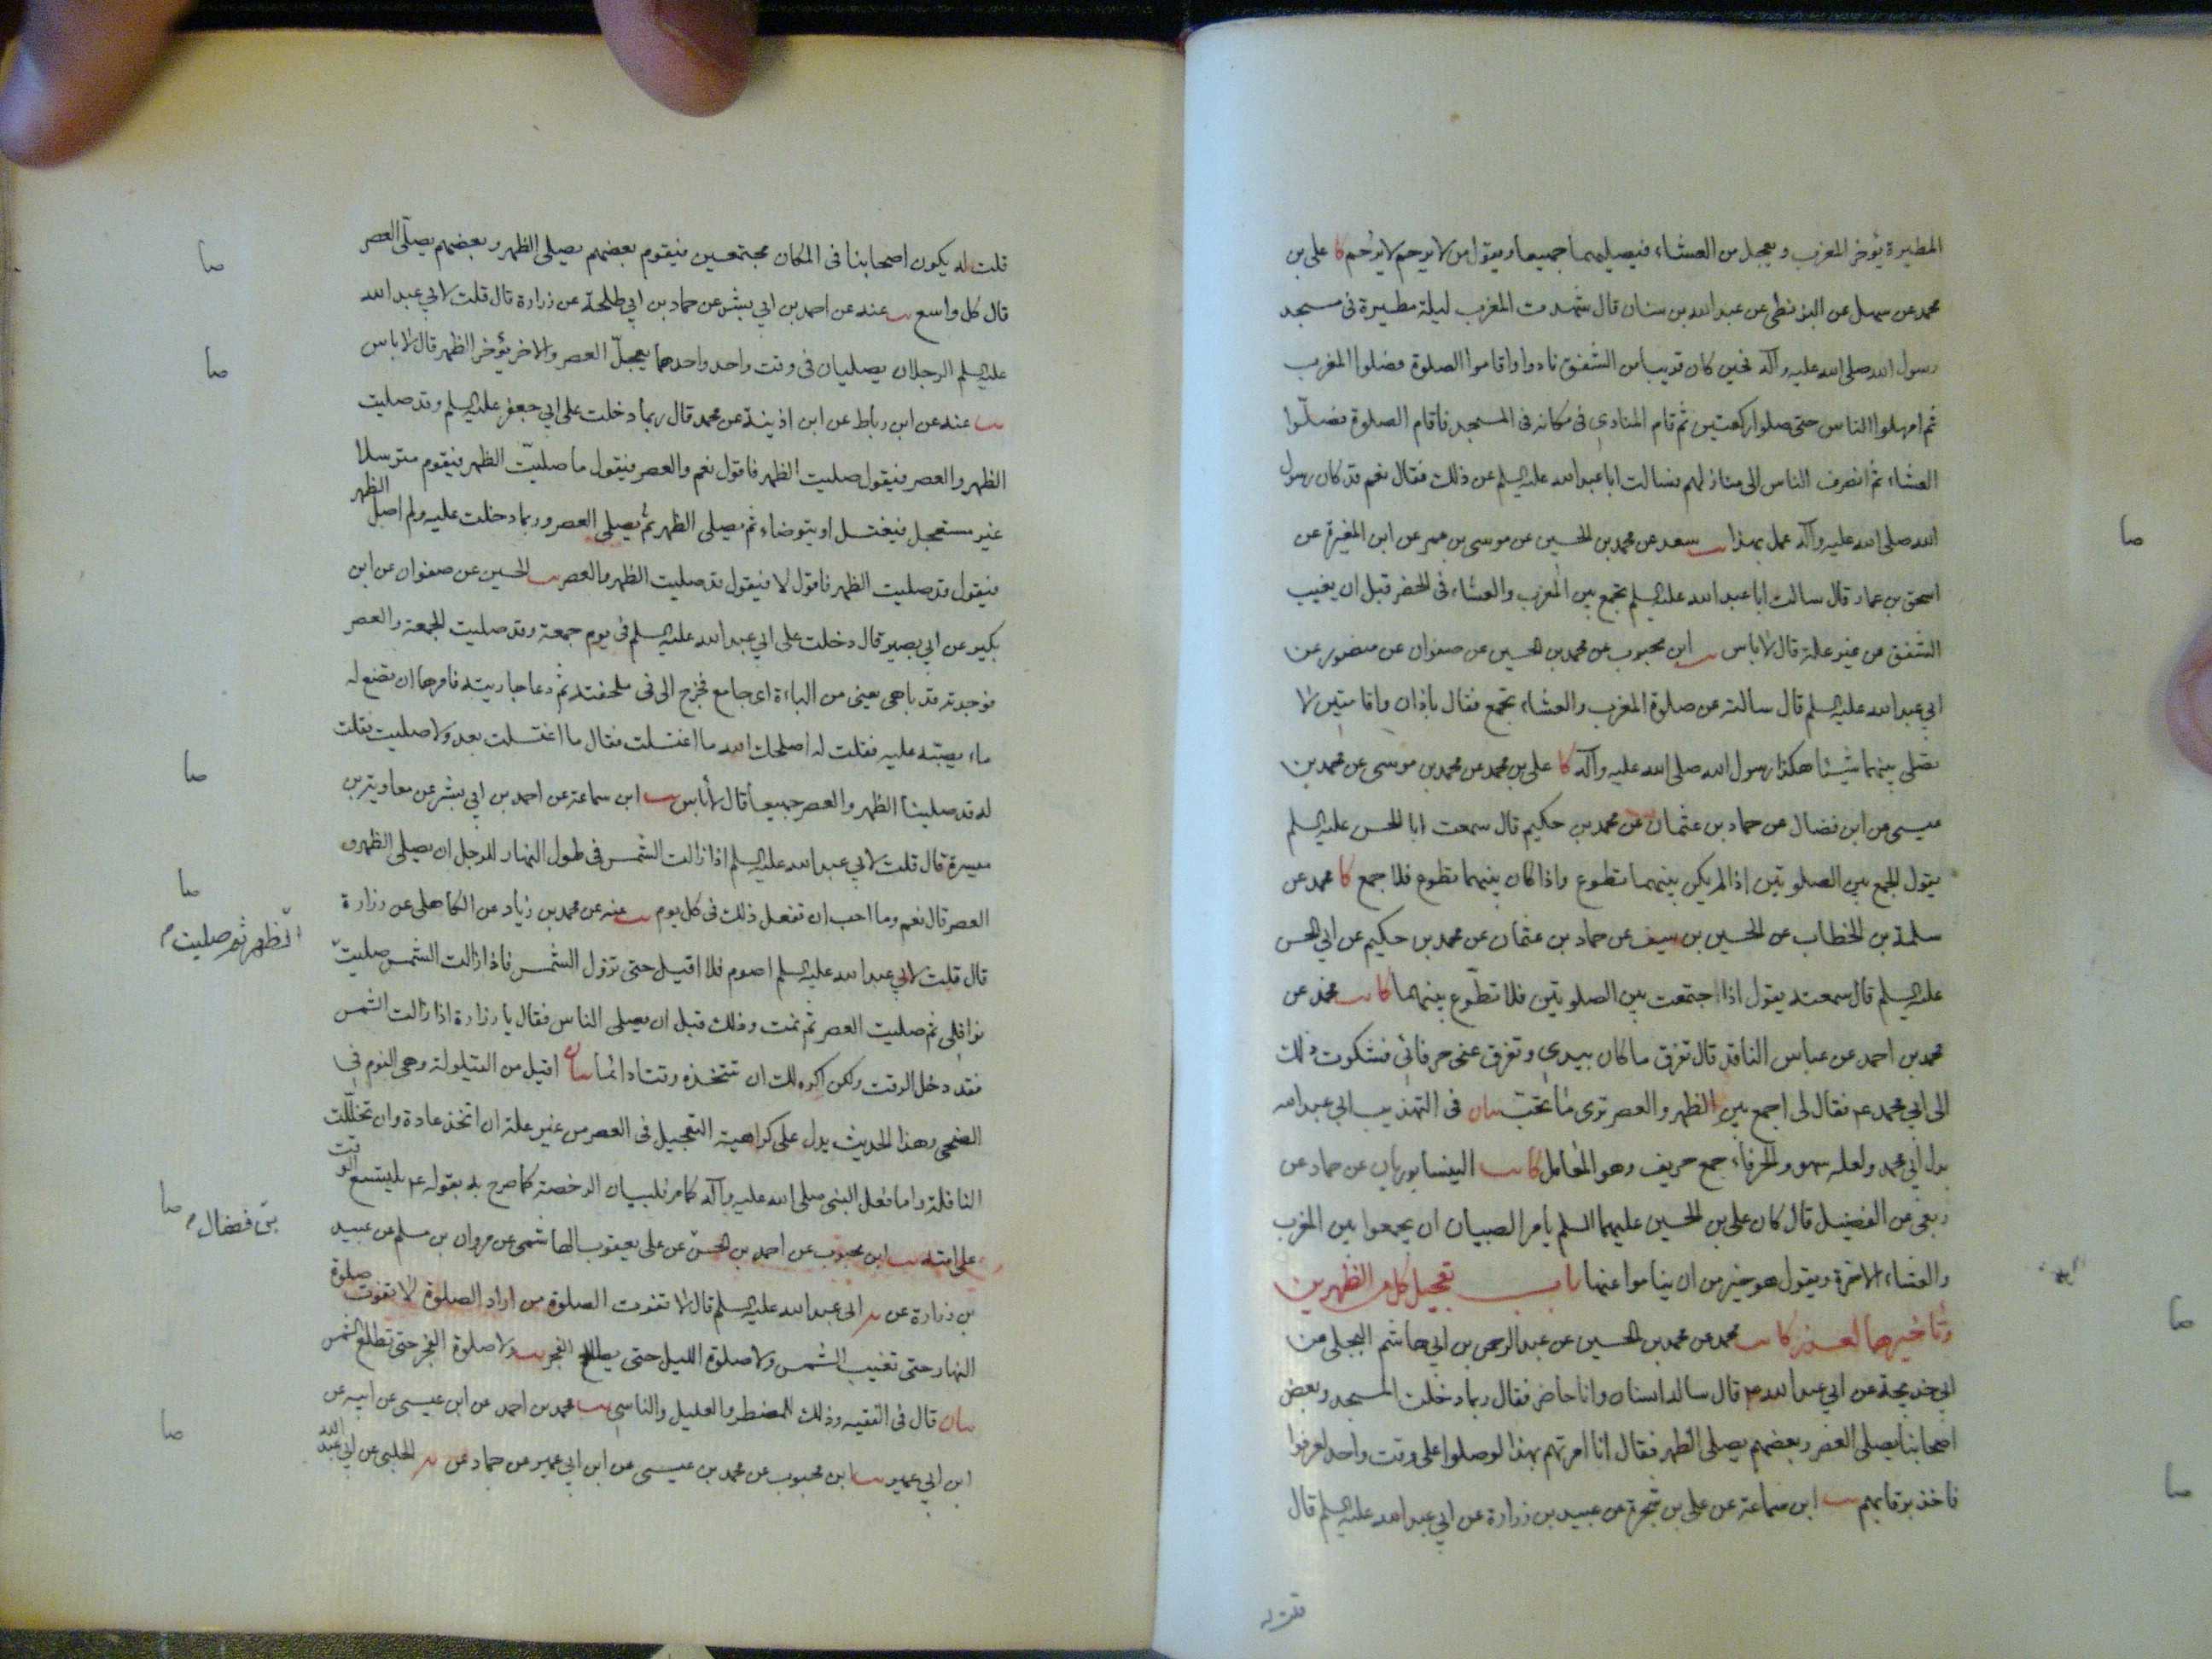 المطيرة يؤخر المغرب ويعجل من العشاء فيصليهما جميعا ويقول من لا يرحم لا يرحم كا على بن
محمد عن سهل عن البزنطى عن عبدالله بن سنان قال شهدت المغرب ليلة مطيرة فى مسجد
رسول الله صلى الله عليه وآله فحين كان قريبا من الشفق نادوا واقاموا الصلوة فصلوا المغرب
ثم امهلوا الناس حتى صلوا ركعتين ثم قام المنادى فى مكانه فى المسجد فاقام الصلوة فصلّوا
العشاء ثم انصرف الناس الى منازلهم فسالت ابا عبدالله عليه السلم عن ذلك فقال نعم قد كان رسول
الله صلى الله عليه وآله عمل بهذا يب سعد عن محمد بن الحسين عن موسى بن عمر عن ابن المغيرة عن
اسحق بن عمار قال سالت ابا عبدالله عليه السلم تجمع بين المغرب والعشاء فى الحضر قبل ان يغيب
الشفق من غير علة قال لا باس يب ابن محبوب عن محمد بن الحسين عن صفوان عن منصور عن
ابى عبدالله عليه السلم قال سالته عن صلوة المغرب والعشاء بجمع فقال باذان واقامتين لا
تصلى بينهما شيئا هكذا رسول الله صلى الله عليه وآله كا على بن محمد عن محمد بن موسى عن محمد بن
عيسى عن ابن فضال عن حماد بن عثمان عن محمد بن حكيم قال سمعت ابا الحسن عليه السلم
يقول الجمع بين الصلوتين اذا لم يكن بينهما تطوع واذا كان بينهما تطوع فلا جمع كا محمد عن
سلمة بن الخطاب عن الحسين بن سيف عن حماد بن عثمان عن محمد بن حكيم عن ابى الحسن
عليه السلم قال سمعته يقول اذا اجتمعت بين الصلوتين فلا تطّوع بينهما كا يب محمد عن
محمد بن احمد عن عباس الناقد قال تفرق ما كان بيدى وتفرق عنى حرفائى فشكوت ذلك
الى ابى محمد ع فقال لى اجمع بين الظهر والعصر ترى ما تحب بيان فى التهذيب ابى عبدالله
بدل ابى محمد ولعله سهو والحرفاء جمع حريف وهو المعامل كا يب النيسابوريان عن حماد عن
ربعى عن الفضيل قال كان على بن الحسين عليهما السلم يأمر الصبيان ان يجمعوا بين المغرب
والعشاء الاخرة ويقول هو خير من ان يناموا عنها باب تعجيل كل من الظهرين
وتأخيرهما لعذر كا يب محمد عن محمد بن الحسين عن عبدالرحمن بن ابى هاشم البجلى عن
ابى خديجة عن ابى عبدالله ع قال ساله انسان وانا حاضر فقال ربما دخلت المسجد وبعض
اصحابنا يصلى العصر وبعضهم يصلى الظهر فقال انا امرتهم بهذا لو صلوا على وقت واحد لعرفوا
فاخذ برقابهم يب ابن سماعة عن على بن شجرة عن عبيد بن زرارة عن ابى عبدالله عليه السلم قال
قلت له
صا
صا
صا
قلت له يكون اصحابنا فى المكان مجتمعين فيقوم بعضهم يصلى الظهر وبعضهم يصلّى العصر
قال كل واسع يب عنه عن احمد بن ابى بشر عن حماد بن ابى طلحة عن زرارة قال قلت لابى عبدالله
عليه السلم الرجلان يصليان فى وقت واحد واحدهما يعجلّ العصر والاخر يؤخر الظهر قال لا باس
يب عنه عن ابن رباط عن ابن اذينة عن محمد قال ربما دخلت على ابى جعفر عليه السلم وقد صليت
الظهر والعصر فيقول صليت الظهر فاقول نعم والعصر فيقول ما صليتُ الظهر فيقوم مترسلا
غير مستعجل فيغتسل او يتوضاء ثم يصلى الظهر ثم يصلى العصر وربما دخلت عليه ولم اصل الظهر
فيقول قد صليت الظهر فاقول لا فيقول قد صليت الظهر والعصر يب الحسين عن صفوان عن ابن
بكير عن ابى بصير قال دخلت على ابى عبدالله عليه السلم فى يوم جمعة وقد صليت الجمعة والعصر
فوجدته قد باهى يعنى من الباءة اى جامع فخرج الى فى ملحفته ثم دعا جاريته فامرها ان تضع له
ماء يصبّه عليه فقلت له اصلحك الله ما اغتسلت فقال ما اغتسلت بعد ولا صليت فقلت
له قد صلينا الظهر والعصر جميعا قال لا باس يب ابن سماعة عن احمد بن ابى بشر عن معاوية بن
ميسرة قال قلت لابى عبدالله عليه السلم اذا زالت الشمس فى طول النهار للرجل ان يصلى الظهر و
العصر قال نعم وما احب ان تفعل ذلك فى كل يوم يب عنه عن محمد بن زياد عن الكاهلى عن زرارة
قال قلت لابى عبدالله عليه السلم اصوم فلا اقيل حتى تزول الشمس فاذا زالت الشمس صليت
نوافلى ثم صليت العصر ثم نمت وذلك قبل ان يصلى الناس فقال يا زرارة اذا زالت الشمس
فقد دخل الوقت ولكن اكره لك ان تتخذه وقتا دائما بيان اقيل من القيلولة وهى النوم فى
الضحى وهذا الحديث يدل على كراهية التعجيل فى العصر من غير علة ان اتخذ عادة وان تخلّلت
النافلة واما فعل النبى صلى الله عليه وآله كما مر فلبيان الرخصة كما صرح به بقوله ع ليتسع الوقت
على امته يب ابن محبوب عن احمد بن الحسن عن على يعقوب الهاشمى عن مروان بن مسلم عن عبيد
بن زرارة عن ابى عبدالله عليه السلم قال لا تفوت الصلوة من اراد الصلوة لا تفوت صلوة
النهار حتى تغيب الشمس ولا صلوة الليل حتى يطلع الفجر ولا صلوة الفجر حتى تطلع الشمس
بيان قال فى الفقيه وذلك للمضطر والعليل والناسى يب محمد بن احمد عن ابن عيسى عن ابيه عن
ابن ابى عمير يب ابن محبوب عن محمد بن عيسى عن ابن ابى عمير عن حماد عن الحلبى عن ابى عبدالله
صا
صا
صا
صا
الظهر ثم صليت م
صا
بن فضال م
صا